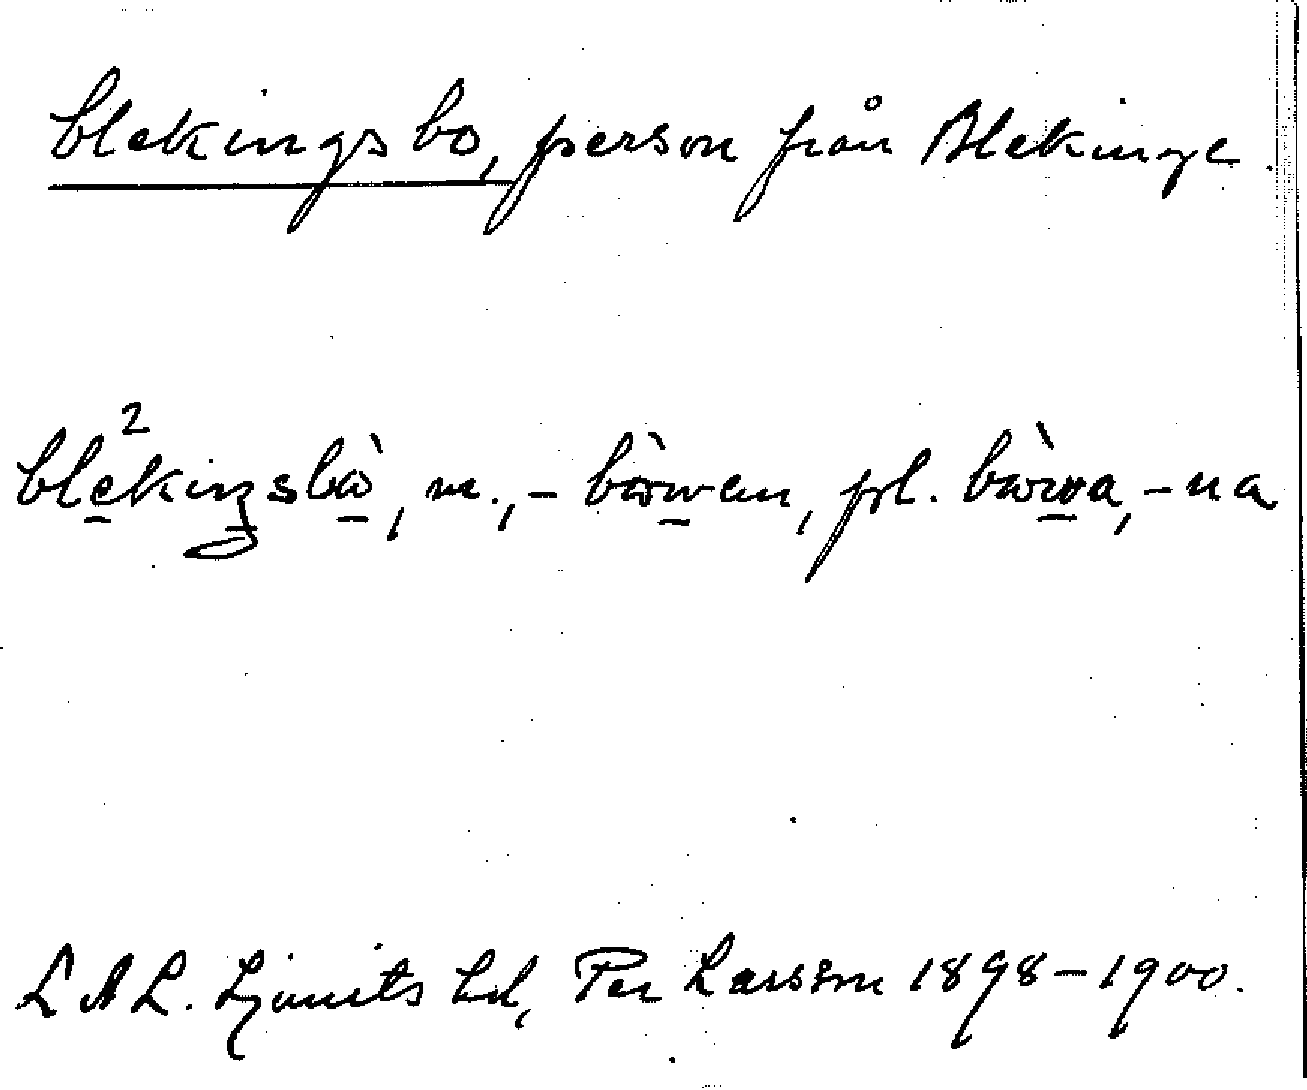 blekingsbo, person från Blekinge.
ble²kiŋsbò, m., - bòwen, pl. bòwa, -na
LAL. Ljunits hd, Per Larsson 1898-1900.